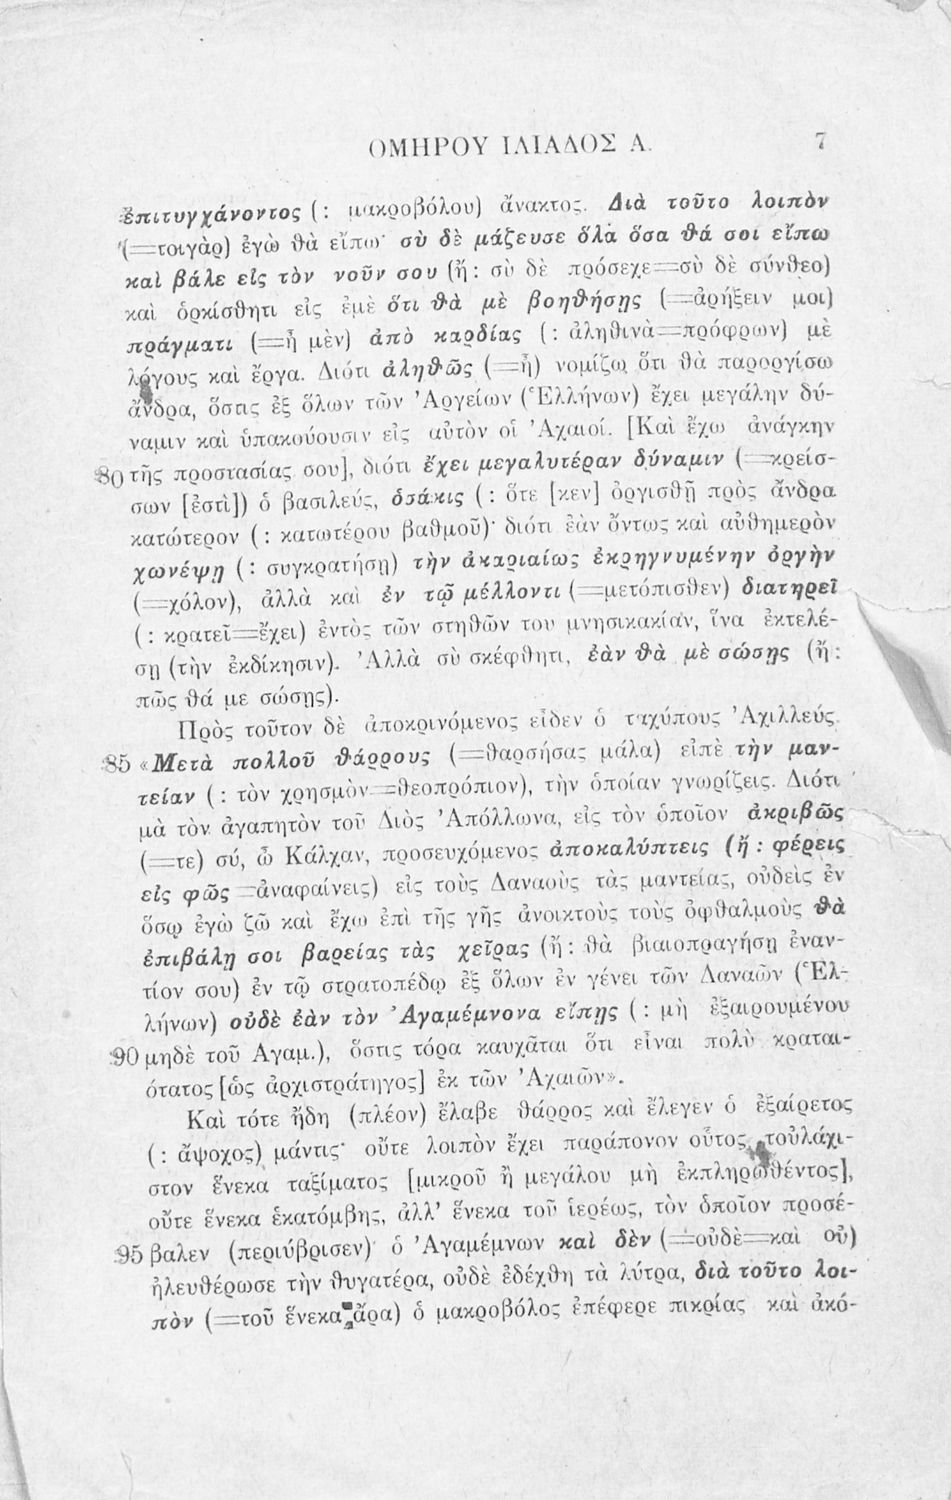 ΟΜΗΡΟΥ ΙΛΙΑΔΟΣ Α. 7
ἐπιτυγχάνοντος (: μακροβόλου) ἄνακτος. Διὰ τοῦτο λοιπὸν
(=τοιγὰρ) ἐγὼ θὰ εἴπω· σὺ δὲ μάζευσε ὅλα ὅσα θά σοι εἴπω
καὶ βάλε εἰς τὸν νοῦν σου (ἤ: σὺ δὲ πρόσεχε=σὺ δὲ σύνθεο)
καὶ ὁρκίσθητι εἰς ἐμὲ ὅτι θὰ μὲ βοηθήσῃς (=ἀρήξειν μοι)
πράγματι (=ἦ μὲν) ἀπὸ καρδίας (: ἀληθινὰ=πρόφρων) μὲ
λόγους καὶ ἔργα. Διότι ἀληθῶς (=ἦ) νομίζω ὅτι θὰ παροργίσω
ἄνδρα, ὅστις ἐξ ὅλων τῶν Ἀργείων (Ἑλλήνων) ἔχει μεγάλην δύ-
ναμιν καὶ ὑπακούουσιν εἰς αὐτὸν οἱ Ἀχαιοί. [Καὶ ἔχω ἀνάγκην
80 τῆς προστασίας σου], διότι ἔχει μεγαλυτέραν δύναμιν (=κρείσ-
σων [ἐστὶ]) ὁ βασιλεύς, ὁσάκις (: ὅτε [κεν] ὀργισθῇ πρὸς ἄνδρα
κατώτερον (: κατωτέρου βαθμοῦ)· διότι ἐὰν ὄντως καὶ αὐθημερὸν
χωνέψῃ (: συγκρατήσῃ) τὴν ἀκαριαίως ἐκρηγνυμένην ὀργὴν
(=χόλον), ἀλλὰ καὶ ἐν τῷ μέλλοντι (=μετόπισθεν) διατηρεῖ
(: κρατεῖ=ἔχει) ἐντὸς τῶν στηθῶν του μνησικακίαν, ἵνα ἐκτελέ-
σῃ (τὴν ἐκδίκησιν). Ἀλλὰ σὺ σκέφθητι, ἐὰν θὰ μὲ σώσῃς (ἤ:
πῶς θά με σώσῃς).
Πρὸς τοῦτον δὲ ἀποκρινόμενος εἶδεν ὁ ταχύπους Ἀχιλλεύς.
85 «Μετὰ πολλοῦ θάρρους (=θαρσήσας μάλα) εἰπὲ τὴν μαν-
τείαν (: τὸν χρησμὸν=θεοπρόπιον), τὴν ὁποίαν γνωρίζεις. Διότι
μὰ τὸν ἀγαπητὸν τοῦ Διὸς Ἀπόλλωνα, εἰς τὸν ὁποῖον ἀκριβῶς
(=τε) σύ, ὦ Κάλχαν, προσευχόμενος ἀποκαλύπτεις (ἤ: φέρεις
εἰς φῶς=ἀναφαίνεις) εἰς τοὺς Δαναοὺς τὰς μαντείας, οὐδεὶς ἐν
ὅσῳ ἐγὼ ζῶ καὶ ἔχω ἐπὶ τῆς γῆς ἀνοικτοὺς τοὺς ὀφθαλμοὺς θὰ
ἐπιβάλῃ σοι βαρείας τὰς χεῖρας (ἤ: θὰ βιαιοπραγήσῃ ἐναν-
τίον σου) ἐν τῷ στρατοπέδῳ ἐξ ὅλων ἐν γένει τῶν Δαναῶν (Ἑλ-
λήνων) οὐδὲ ἐὰν τὸν Ἀγαμέμνονα εἴπῃς (: μὴ ἐξαιρουμένου
90 μηδὲ τοῦ Αγαμ.), ὅστις τόρα καυχᾶται ὅτι εἶναι πολὺ κραται-
ότατος [ὡς ἀρχιστράτηγος] ἐκ τῶν Ἀχαιῶν».
Καὶ τότε ἤδη (πλέον) ἔλαβε θάρρος καὶ ἔλεγεν ὁ ἐξαίρετος
(: ἄψοχος) μάντις· οὔτε λοιπὸν ἔχει παράπονον οὗτος τοὐλάχι-
στον ἕνεκα ταξίματος [μικροῦ ἢ μεγάλου μὴ ἐκπληρωθέντος],
οὔτε ἕνεκα ἑκατόμβης, ἀλλ' ἕνεκα τοῦ ἱερέως, τὸν ὁποῖον προσέ-
95 βαλεν (περιύβρισεν) ὁ Ἀγαμέμνων καὶ δὲν (=οὐδὲ=καὶ οὐ)
ἠλευθέρωσε τὴν θυγατέρα, οὐδὲ ἐδέχθη τὰ λύτρα, διὰ τοῦτο λοι-
πὸν (=τοῦ ἕνεκα ἄρα) ὁ μακροβόλος ἐπέφερε πικρίας καὶ ἀκό-